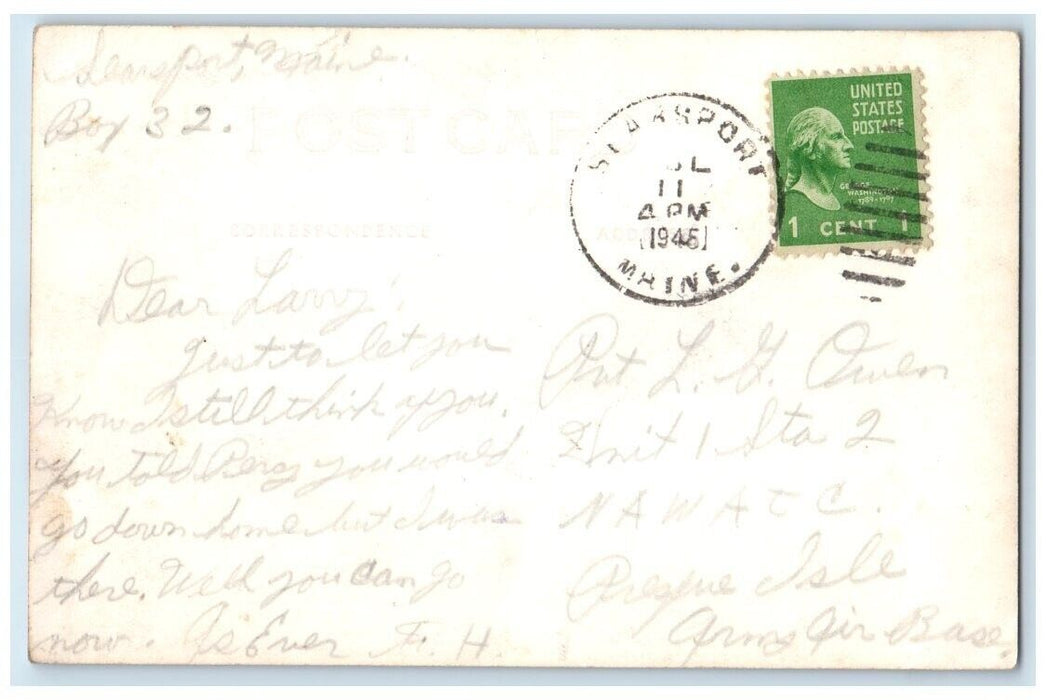 Searsport, Maine.
Box 32.
POST CARD
CORRESPONDENCE
ADDRESS
SEARSPORT
JUL
11
4 PM
1945
MAINE.
UNITED
STATES
POSTAGE
GEORGE
WASHINGTON
1789-1797
1 CENT 1
Dear Larry:
Just to let you
know I still think of you.
You told Percy you would
go down home but I was
there. Well you can go
now. As Ever F. H.
Pvt L. G. Owen
Unit 1 Sta 2
N A W A T C.
Presque Isle
Army Air Base.